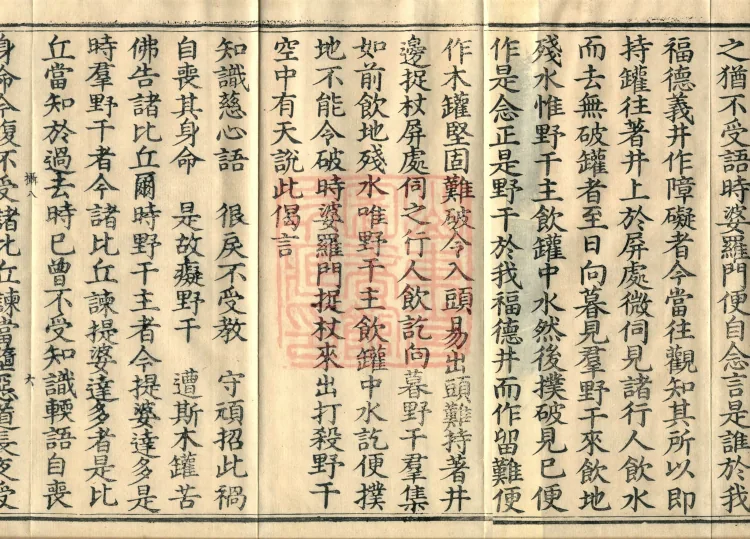 之猶不受語時婆羅門便自念言是誰於我
福德義井作障礙者今當往觀知其所以即
持罐往著井上於屏處微伺見諸行人飲水
而去無破罐者至日向暮見羣野干來飲地
殘水惟野干主飲罐中水然後撲破見已便
作是念正是野干於我福德井而作留難便
作木罐堅固難破令入頭易出頭難持著井
邊捉杖屏處伺之行人飲訖向暮野干羣集
如前飲地殘水唯野干主飲罐中水訖便撲
地不能令破時婆羅門捉杖來出打殺野干
空中有天說此偈言
知識慈心語　很戾不受教　守頑招此禍
自喪其身命　是故癡野干　遭斯木罐苦
佛告諸比丘爾時野干主者今提婆達多是
時羣野干者今諸比丘諫提婆達多者是比
丘當知於過去時已曾不受知識輭語自喪
攝八
六
身命今復不受諸比丘諫當墮惡道長夜受